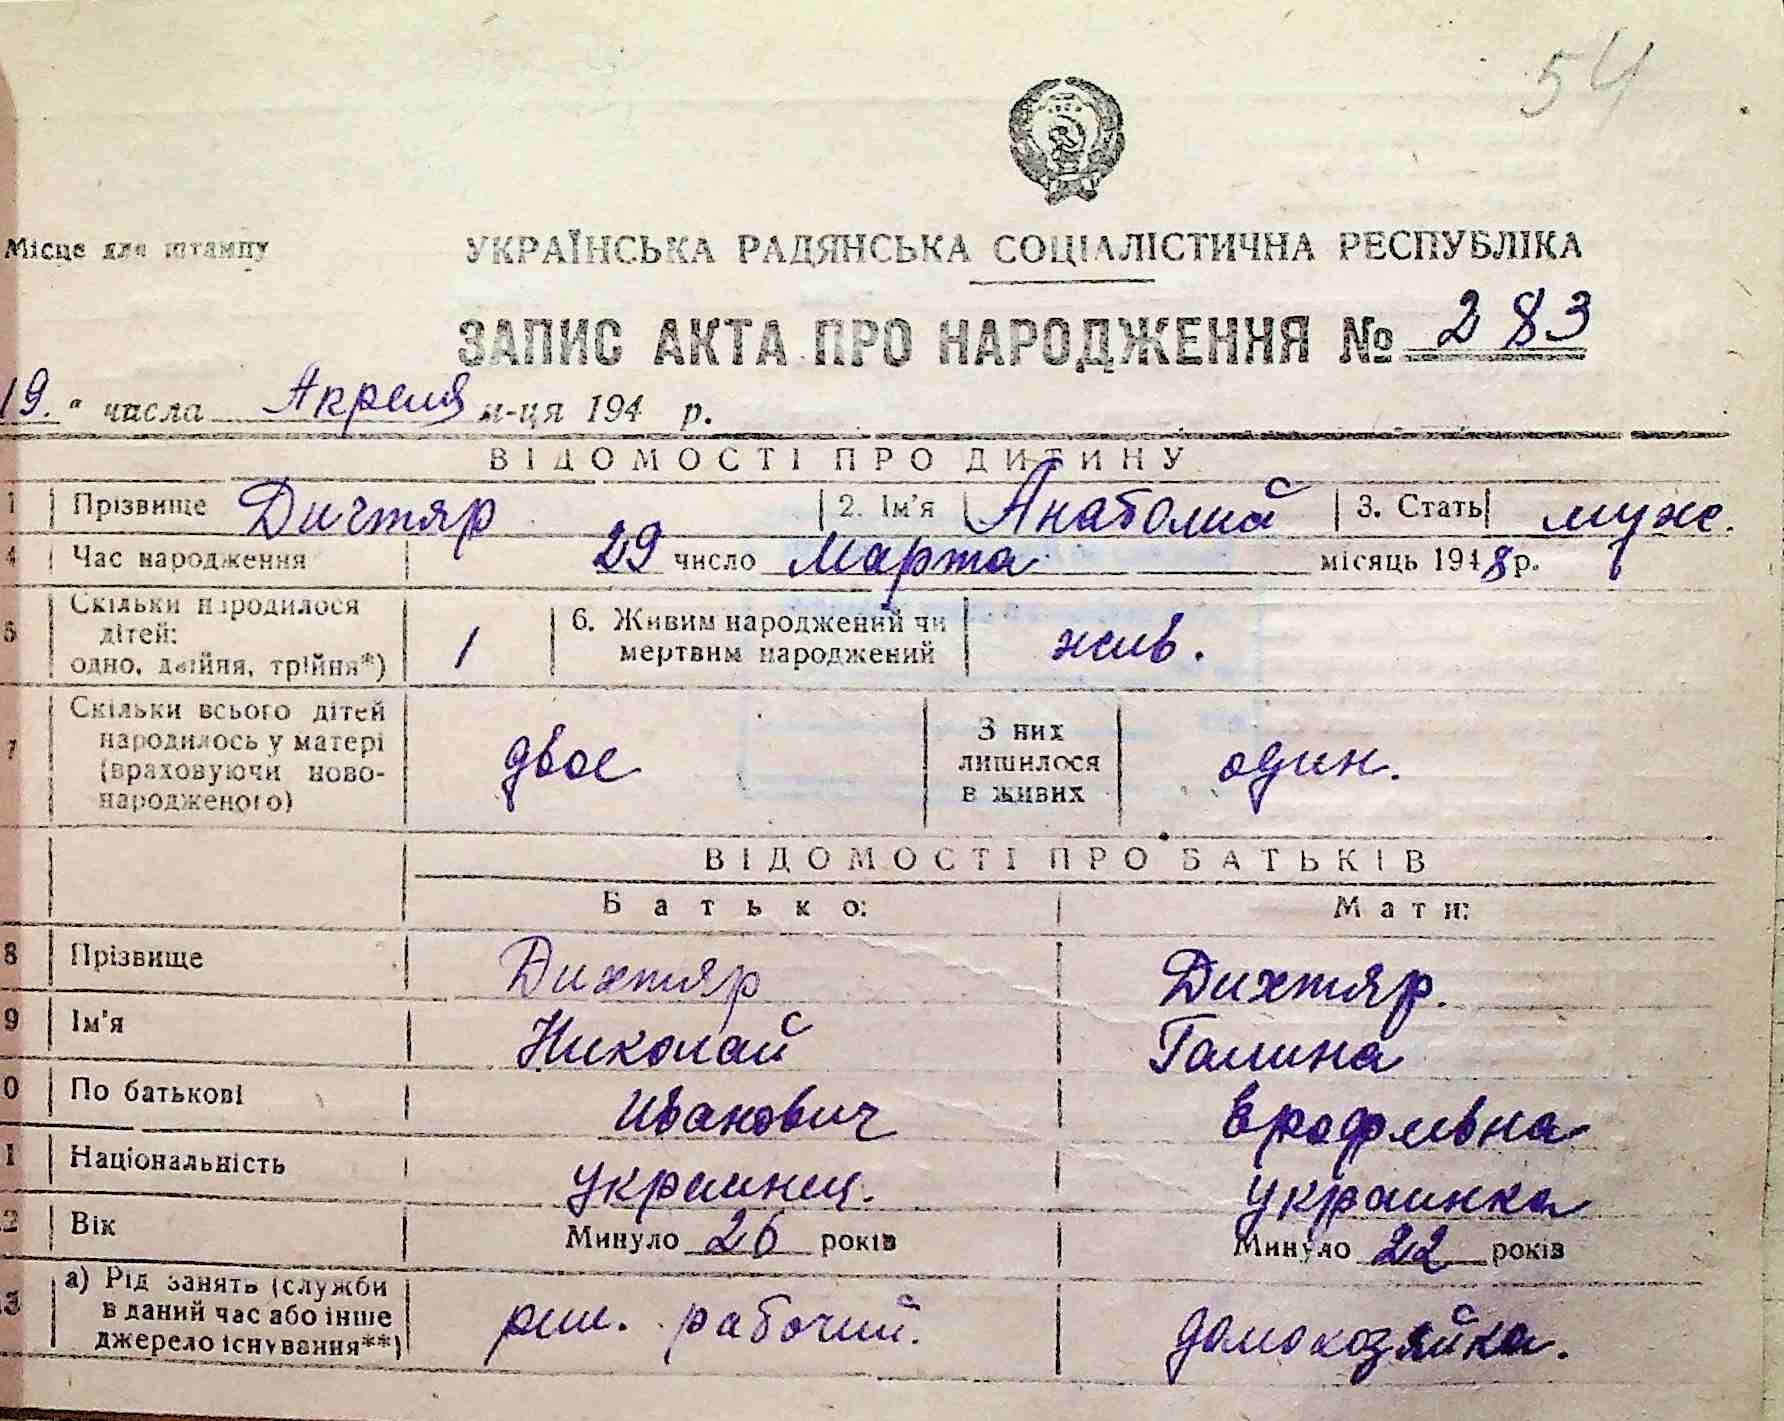 54
Місце для штампу
УКРАЇНСЬКА РАДЯНСЬКА СОЦІАЛІСТИЧНА РЕСПУБЛІКА
ЗАПИС АКТА ПРО НАРОДЖЕННЯ № 283
19. " числа Апреля м-ця 194 р.
ВІДОМОСТІ ПРО ДИТИНУ
1 Прізвище Дихтяр 2. Ім'я Анатолий 3. Стать муж.
4 Час народження 29 число Марта місяць 1948 р.
5 Скільки народилося
дітей:
одно, двійня, трійня*) 1
6. Живим народжений чи
мертвим народжений жив.
7 Скільки всього дітей
народилось у матері
(враховуючи ново-
народженого) двое
З них
лишилося
в живих один.
ВІДОМОСТІ ПРО БАТЬКІВ
Батько: Мати:
8 Прізвище Дихтяр Дихтяр.
9 Ім'я Николай Галина
0 По батькові Иванович Ерофеевна
1 Національність украинец. украинка
2 Вік Минуло 26 років Минуло 22 років
3 а) Рід занять (служби
в даний час або інше
джерело існування**) рабочий. домохозяйка.